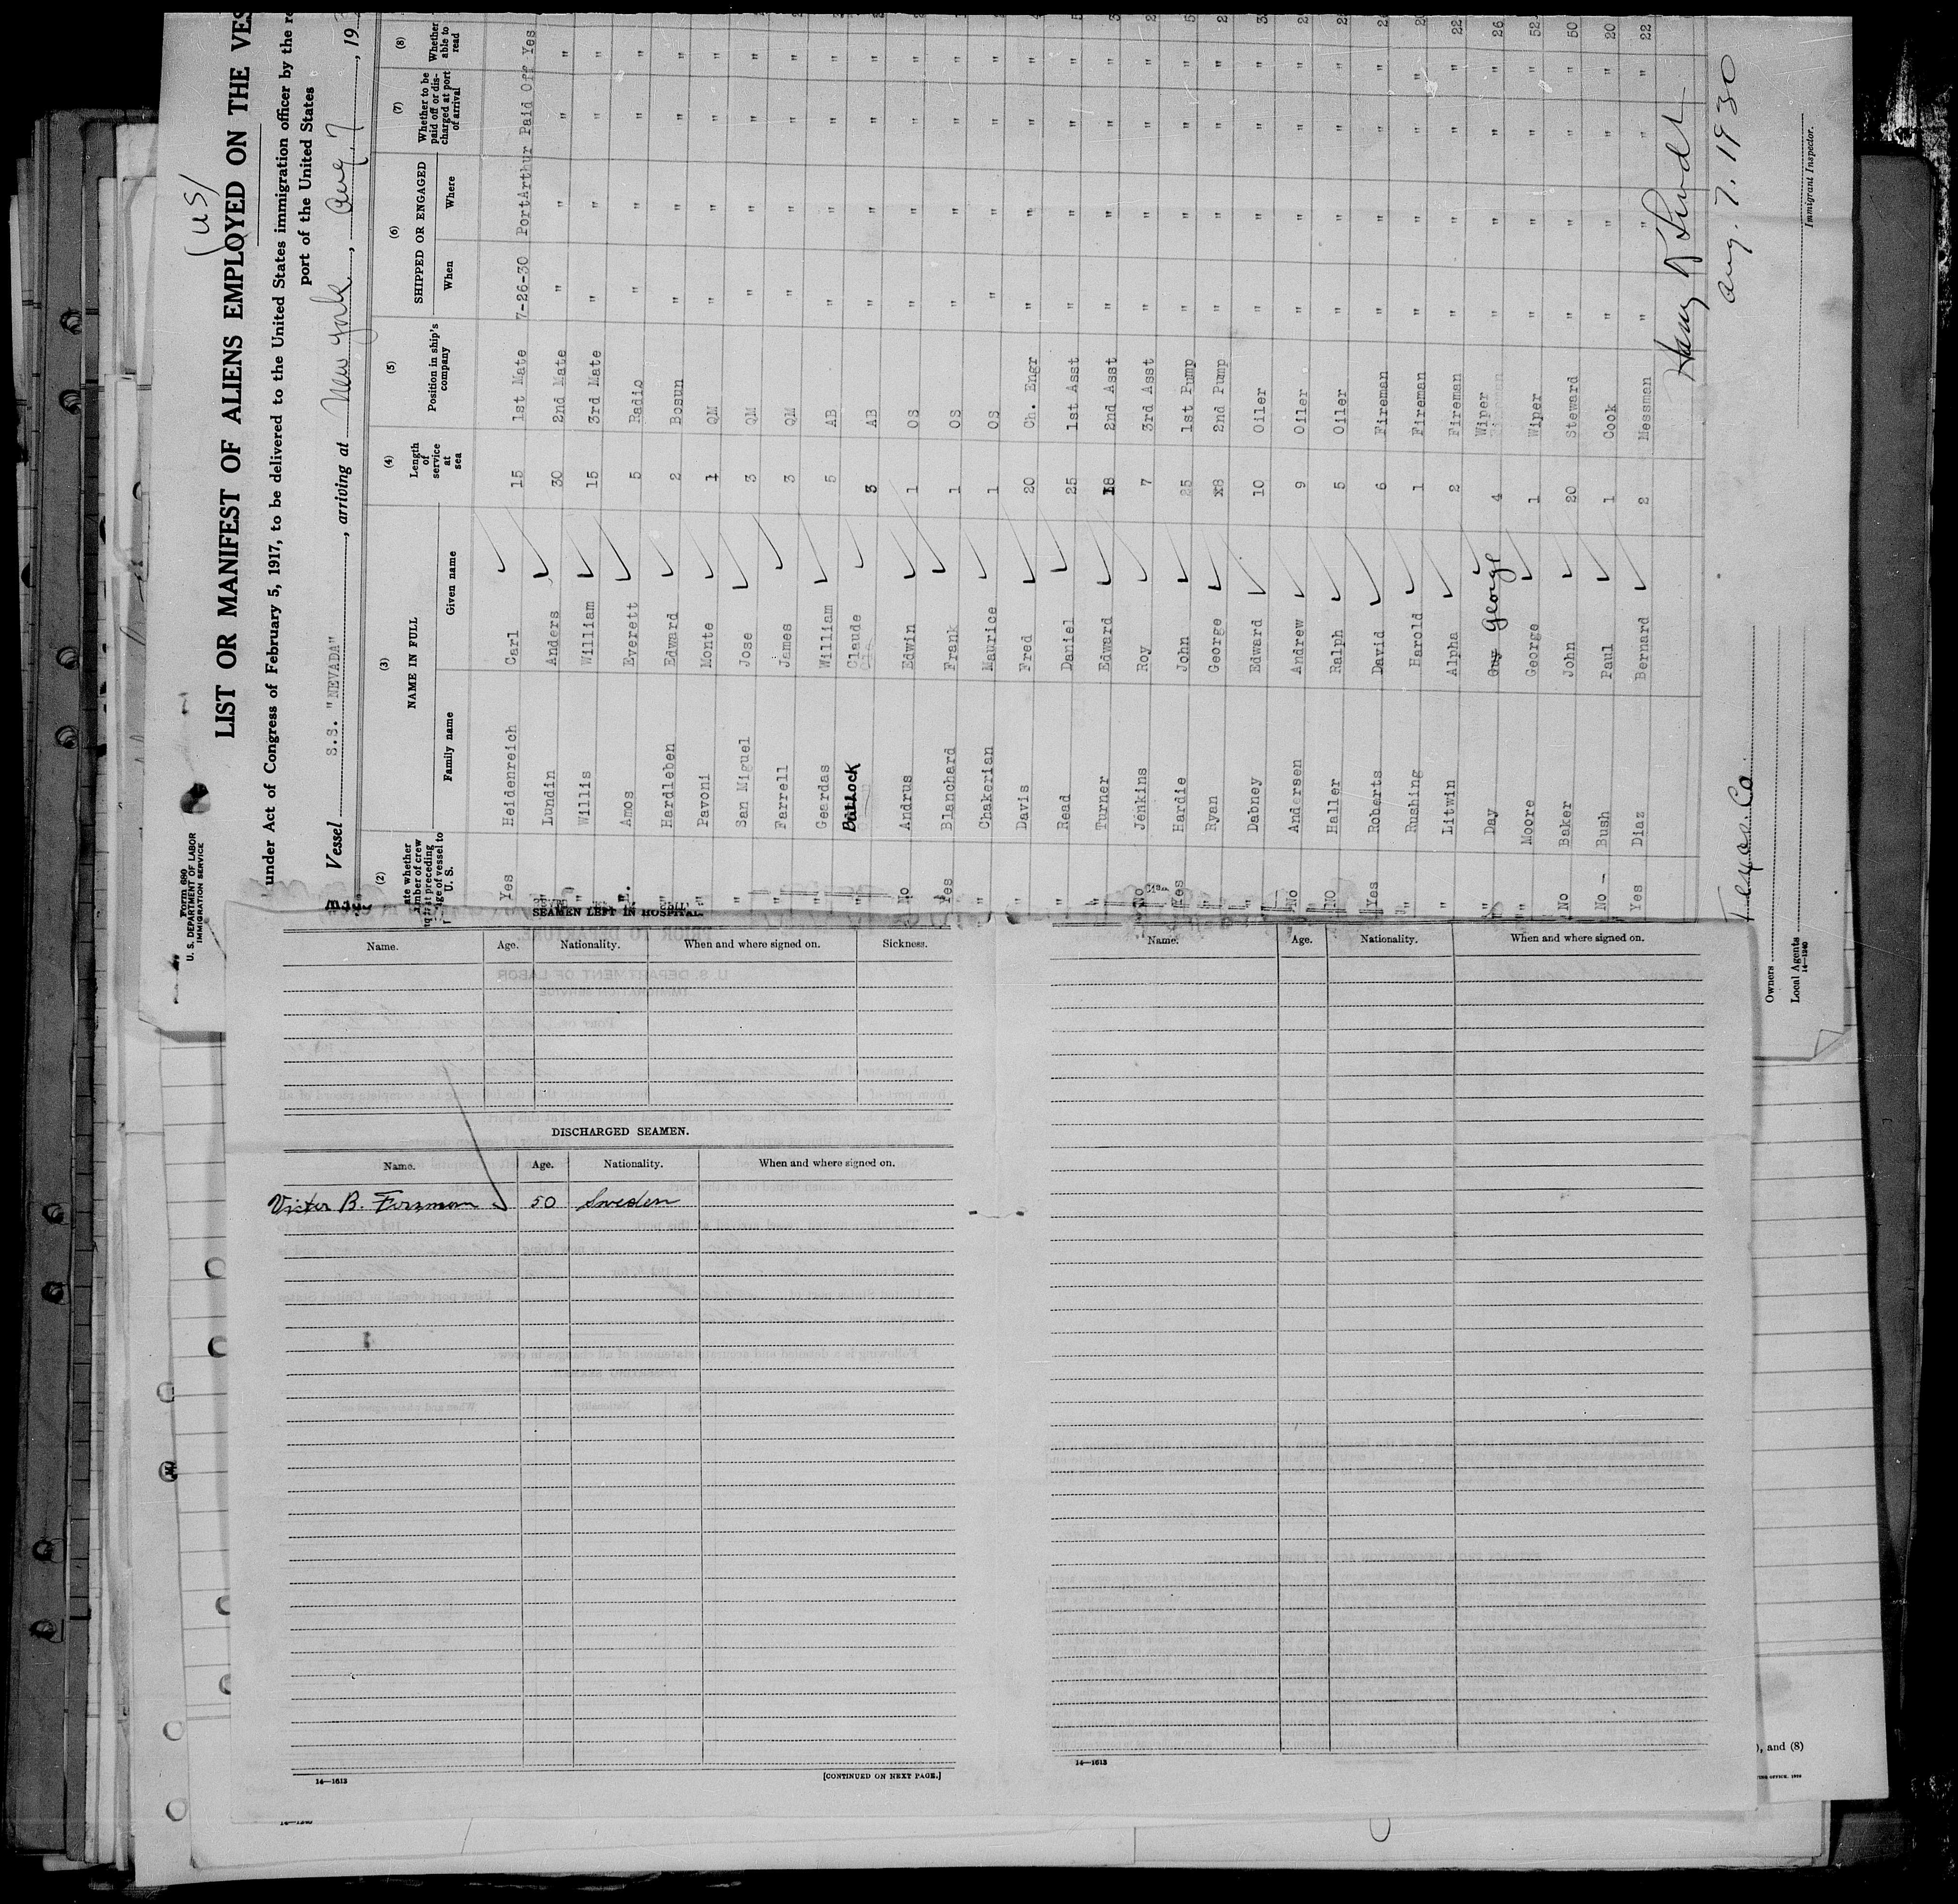 Form 680
U. S. DEPARTMENT OF LABOR
IMMIGRATION SERVICE
(US)
LIST OR MANIFEST OF ALIENS EMPLOYED ON THE VES
under Act of Congress of February 5, 1917, to be delivered to the United States immigration officer by the re
port of the United States
Vessel S.S. "NEVADA", arriving at New York, Aug. 7, 193
(2) (3) (4) (5) (6) (7) (8)
NAME IN FULL Length of service at sea Position in ship's company SHIPPED OR ENGAGED Whether to be paid off or discharged at port of arrival Whether able to read
Family name Given name When Where
Yes Heidenreich Carl 15 1st Mate 7-26-30 PortArthur Paid Off Yes
" Lundin Anders 30 2nd Mate " " " "
" Willis William 15 3rd Mate " " " "
" Amos Everett 5 Radio " " " "
" Hardleben Edward 2 Bosun " " " "
" Pavoni Monte 1 QM " " " "
" San Miguel Jose 3 QM " " " "
" Farrell James 3 QM " " " "
" Geardas William 5 AB " " " "
" Bullock Claude 3 AB " " " "
No Andrus Edwin 1 OS " " " "
Yes Blanchard Frank 1 OS " " " "
" Chakerian Maurice 1 OS " " " "
" Davis Fred 20 Ch. Engr " " " "
" Read Daniel 25 1st Asst " " " "
" Turner Edward 18 2nd Asst " " " "
No Jenkins Roy 7 3rd Asst " " " "
Yes Hardie John 25 1st Pump " " " "
" Ryan George 8 2nd Pump " " " "
" Dabney Edward 10 Oiler " " " "
No Andersen Andrew 9 Oiler " " " "
NO Haller Ralph 5 Oiler " " " "
Yes Roberts David 6 Fireman " " " "
" Rushing Harold 1 Fireman " " " "
" Litwin Alpha 2 Fireman " " " " 22
" Day Guy George 4 Wiper " " " " 26
" Moore George 1 Wiper " " " " 52
No Baker John 20 Steward " " " " 50
No - Bush Paul 1 Cook " " " " 20
Yes Diaz Bernard 2 Messman " " " " 22
Aug. 7. 1930
Immigrant Inspector.
Owners
Local Agents
14—1240
SEAMEN LEFT IN HOSPITAL.
Name. Age. Nationality. When and where signed on. Sickness.
DISCHARGED SEAMEN.
Name. Age. Nationality. When and where signed on.
Victor B. Forsman 50 Sweden
14—1613
[CONTINUED ON NEXT PAGE.]
Name. Age. Nationality. When and where signed on.
14—1613
), and (8)